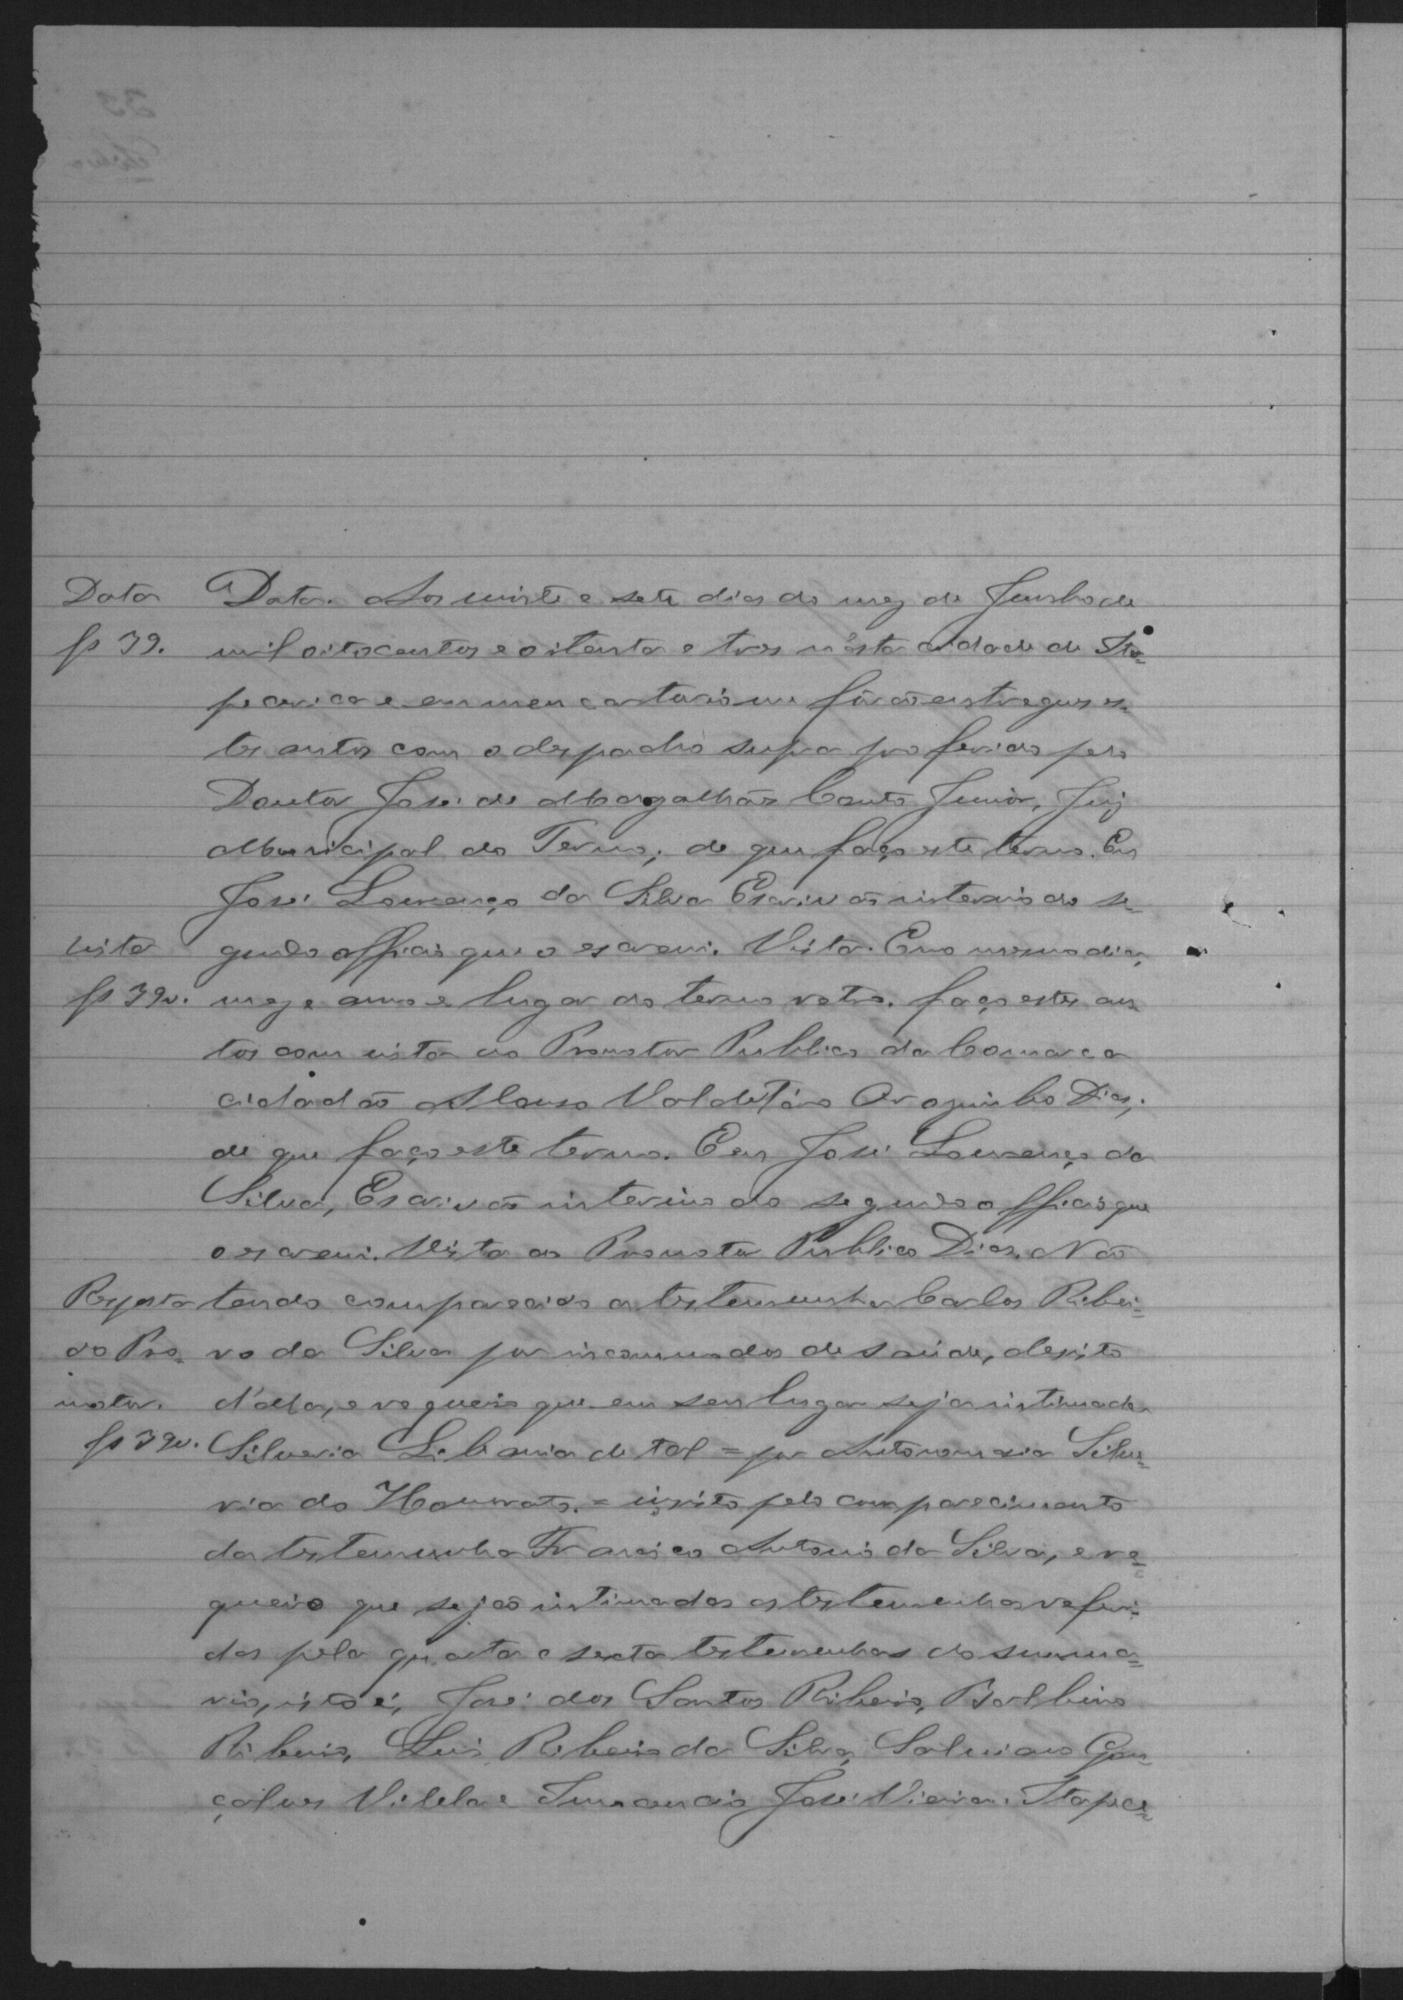 Data
fs 39.
Data. Aos vinte e sete dias do mez de Junho de
mil oitocentos e oitenta e tres nésta cidade de Ita=
pecerica e em meu cartorio me forão entregues es-
tes autos com o despacho supra proferido pelo
Doutor José de Magalhães Couto Junior, Juiz
Municipal do Termo; de que faço este termo. Eu
José Lourenço da Silva Escrivão interino do se-
Vista
fs 39v.
gundo officio que o escrevi. Vista. E no mesmo dia,
mez e anno e lugar do termo retro. faço estes au-
tos com vista ao Promotor Publico da Comarca
cidadão Alonso Valdetáro Dias,
de que faço este termo. Eu José Lourenço da
Silva, Escrivão interino do segundo officio que
o escrevi. Vista ao Promotor Publico Dias. Não
Resposta
do Pro=
motor.
fs 39v.
tendo comparecido a testemunha Carlos Ribei=
ro da Silva por incommodos de saúde, desisto
d'ella, e requeiro que em seu lugar seja intimada
Silveria Libania de tal = por Antonomasia Silve=
ria do Honorato. = insisto pelo comparecimento
da testemunha Francisco Antonio da Silva, e re=
queiro que sejão intimadas as testemunhas referi=
das pela quarta e sexta testemunhas do summa=
rio, isto é, José dos Santos Ribeiro, Balbino
Ribeiro, Luis Ribeiro da Silva, Salviano Gon=
çalves Vilela e Innocencio José Vieira. Itapece=